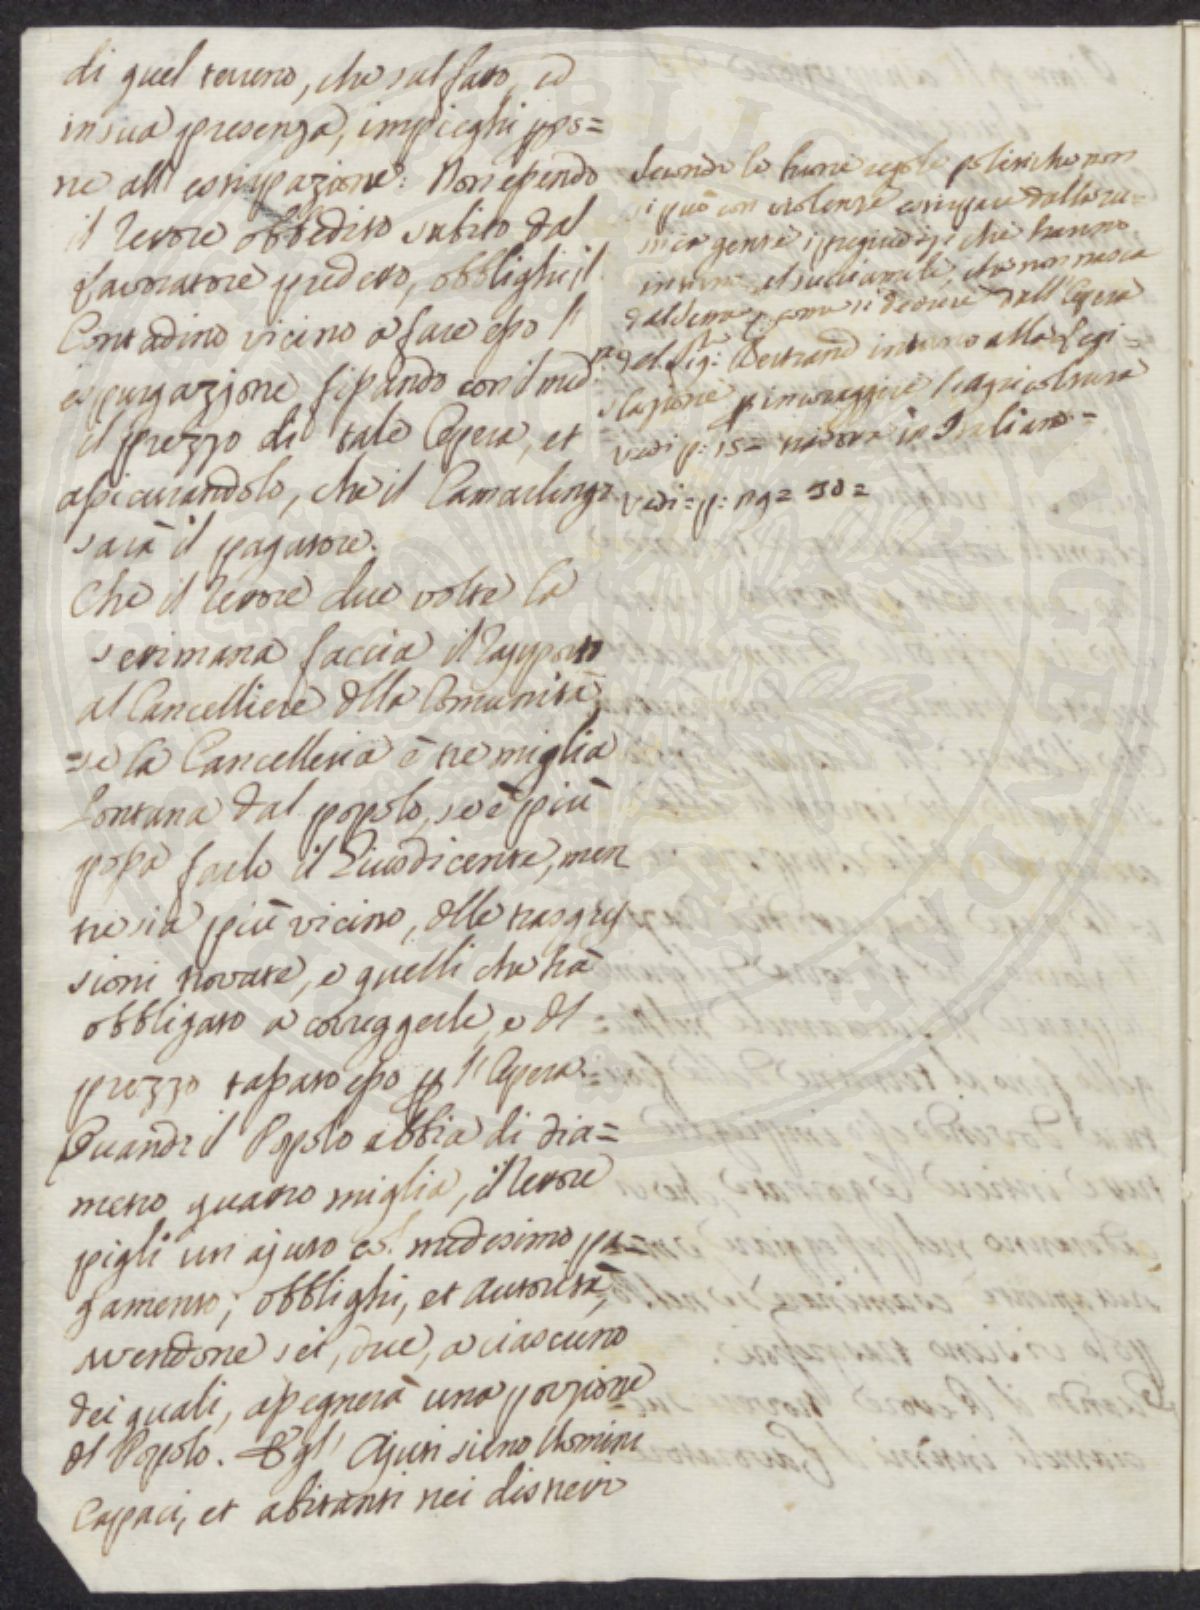 di quel terreno, che sul fatto, ed
in sua presenza, impieghi pps=
ne all' estirpazione: Non essendo
il Rettore obbedito subito dal
Lavoratore predetto, obblighi il
Contadino vicino a fare esso l'
espurgazione, fissando con il med.mo
il prezzo di tale Opera, et
assicurandolo, che il Camarlingo
sarà il pagatore.
Che il Rettore due volte la
settimana faccia il Rapporto
al Cancelliere della Comunità
=se la Cancelleria è tre miglia
lontana dal popolo, se è più
possa farlo il Giusdicente, men
tre sia più vicino, delle trasgres
sioni trovate, e quelli che hà
obbligato a correggerle, e del
prezzo tassato esso per l'Opera.
Quando il Popolo abbia di dia=
metro quattro miglia, il Rettore
pigli un ajuto col medesimo pa=
gamento; obblighi, et autorità,
avendone sei, due, a ciascuno
dei quali, assegnerà una porzione
del Popolo. E gl' Ajuti sieno Uomini
Capaci, et abitanti nei distretti
Secondo le buone regole politiche non
si può con violenza estirpare dalla ru=
stica gente i pregiudizi che hanno
che non nasca
come si deduce dall'Opera
del Sig: Bertrand intorno alla Legi=
slazione p incoraggire l'agricoltura
vedi p: 15= tradotta in Italiano=
vedi=p: 29= 30=